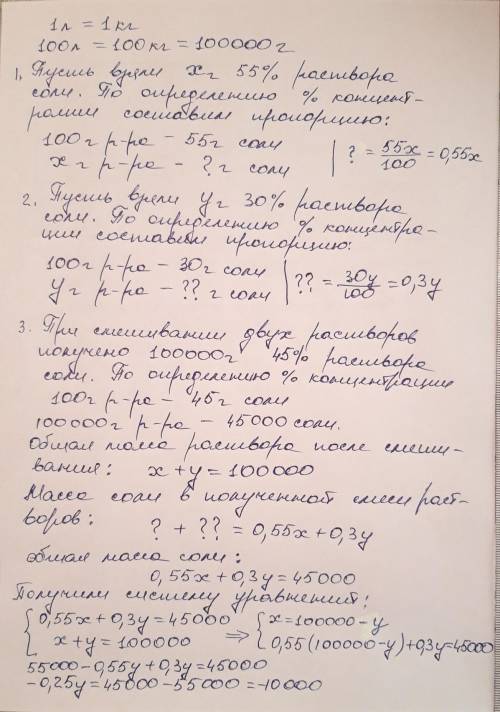 1л = 1кг
100л = 100кг = 100000г
1. Пусть взяли x г 55% раствора
соли. По определению % концент-
рации составим пропорцию:
100г р-ра – 55г соли
x г р-ра – ? г соли | ? = 55x/100 = 0,55x
2. Пусть взяли y г 30% раствора
соли. По определению % концентра-
ции составим пропорцию:
100г р-ра – 30г соли
y г р-ра – ?? г соли | ?? = 30y/100 = 0,3y
3. При смешивании двух растворов
получено 100000г 45% раствора
соли. По определению % концентрации
100г р-ра – 45г соли
100000г р-ра – 45000 соли.
Общая масса раствора после смеши-
вания: x + y = 100000
Масса соли в полученной смеси раст-
воров: ? + ?? = 0,55x + 0,3y
общая масса соли:
0,55x + 0,3y = 45000
Получили систему уравнений:
{ 0,55x + 0,3y = 45000 ⇒ { x = 100000 – y
x + y = 100000 0,55(100000 – y) + 0,3y = 45000
55000 – 0,55y + 0,3y = 45000
–0,25y = 45000 – 55000 = –10000